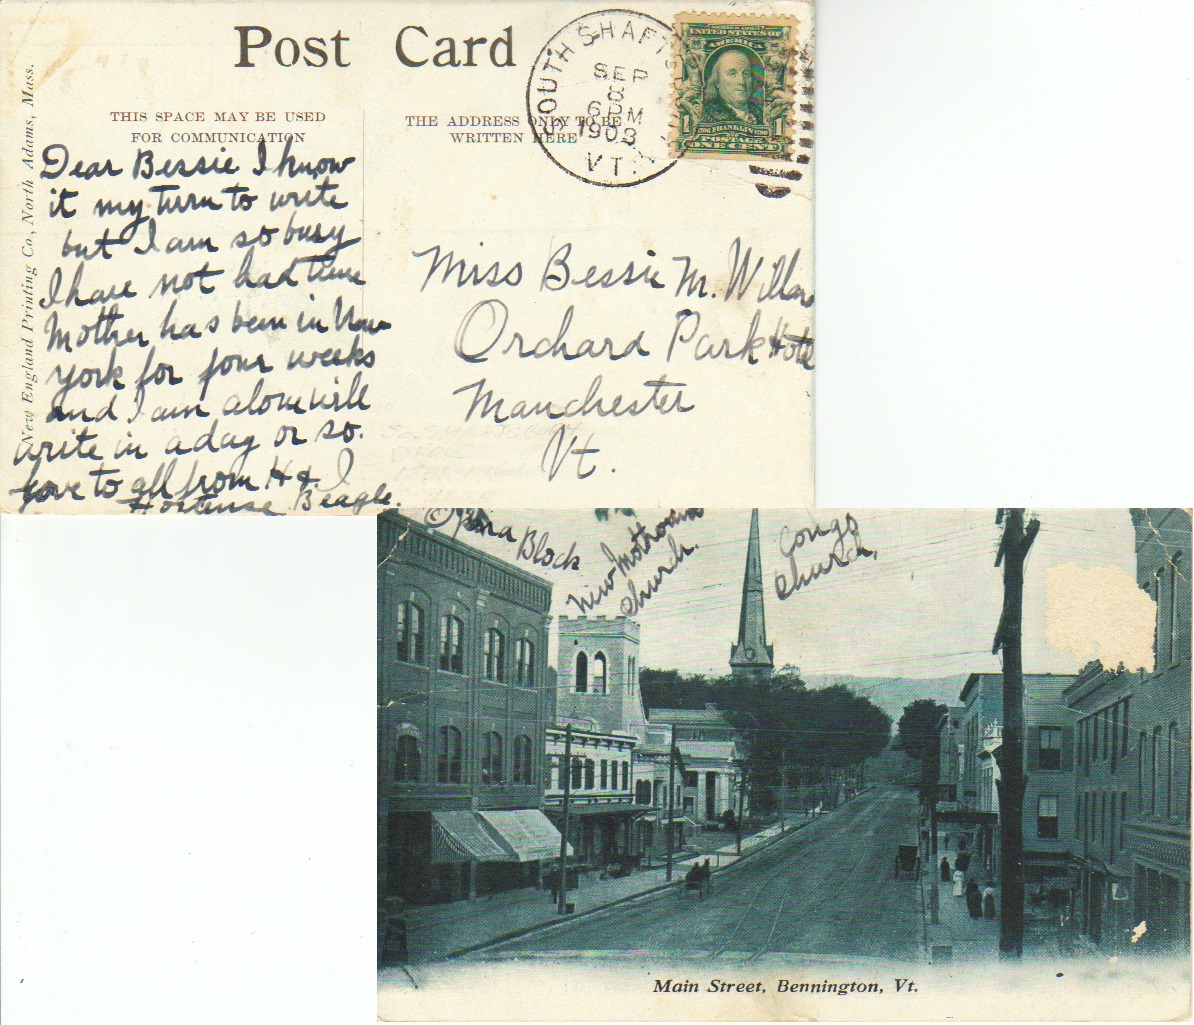 Post Card
THIS SPACE MAY BE USED
FOR COMMUNICATION
THE ADDRESS ONLY TO BE
WRITTEN HERE
New England Printing Co., North Adams, Mass.
SOUTH SHAFTS
SEP
8
6 PM
1903
VT.
SERIES 1902
UNITED STATES OF
AMERICA
1706 FRANKLIN 1790
1 POSTAGE 1
ONE CENT
Dear Bessie I know
it my turn to write
but I am so busy
I have not had time
Mother has been in New
york for four weeks
and I am alone will
write in a day or so.
Love to all from H & I
Hortense Beagle.
Miss Bessie M. Willard
Orchard Park Hote
Manchester
Vt.
Opera Block
New Methodist
church.
Congo
church,
Main Street, Bennington, Vt.